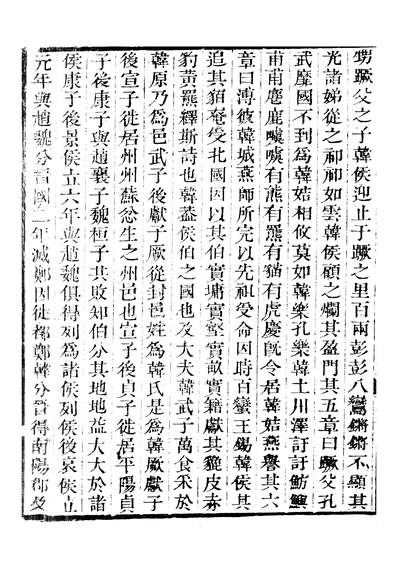 甥蹶父之子韓侯迎止于蹶之里百兩彭彭八鸞鏘鏘不顯其
光諸娣從之祁祁如雲韓侯顧之爛其盈門其五章曰蹶父孔
武靡國不到爲韓姞相攸莫如韓樂孔樂韓土川澤訏訏魴鱮
甫甫麀鹿噳噳有熊有羆有猫有虎慶旣令居韓姞燕譽其六
章曰溥彼韓城燕師所完以先祖受命因時百蠻王錫韓侯其
追其貊奄受北國因以其伯實墉實壑實畝實籍獻其貔皮赤
豹黃羆繹斯詩也韓葢侯伯之國也及大夫韓武子萬食采於
韓原乃爲邑武子後獻子厥從封邑姓爲韓氏是爲韓厥獻子
後宣子徙居州州蘇忿生之州邑也宣子後貞子徙居平陽貞
子後康子與趙襄子魏桓子共敗知伯分其地地益大大於諸
侯康子後景侯立六年與趙魏俱得列爲諸侯列侯後哀侯立
元年與趙魏分晉國二年滅鄭因徙都鄭韓分晉得南陽郡及